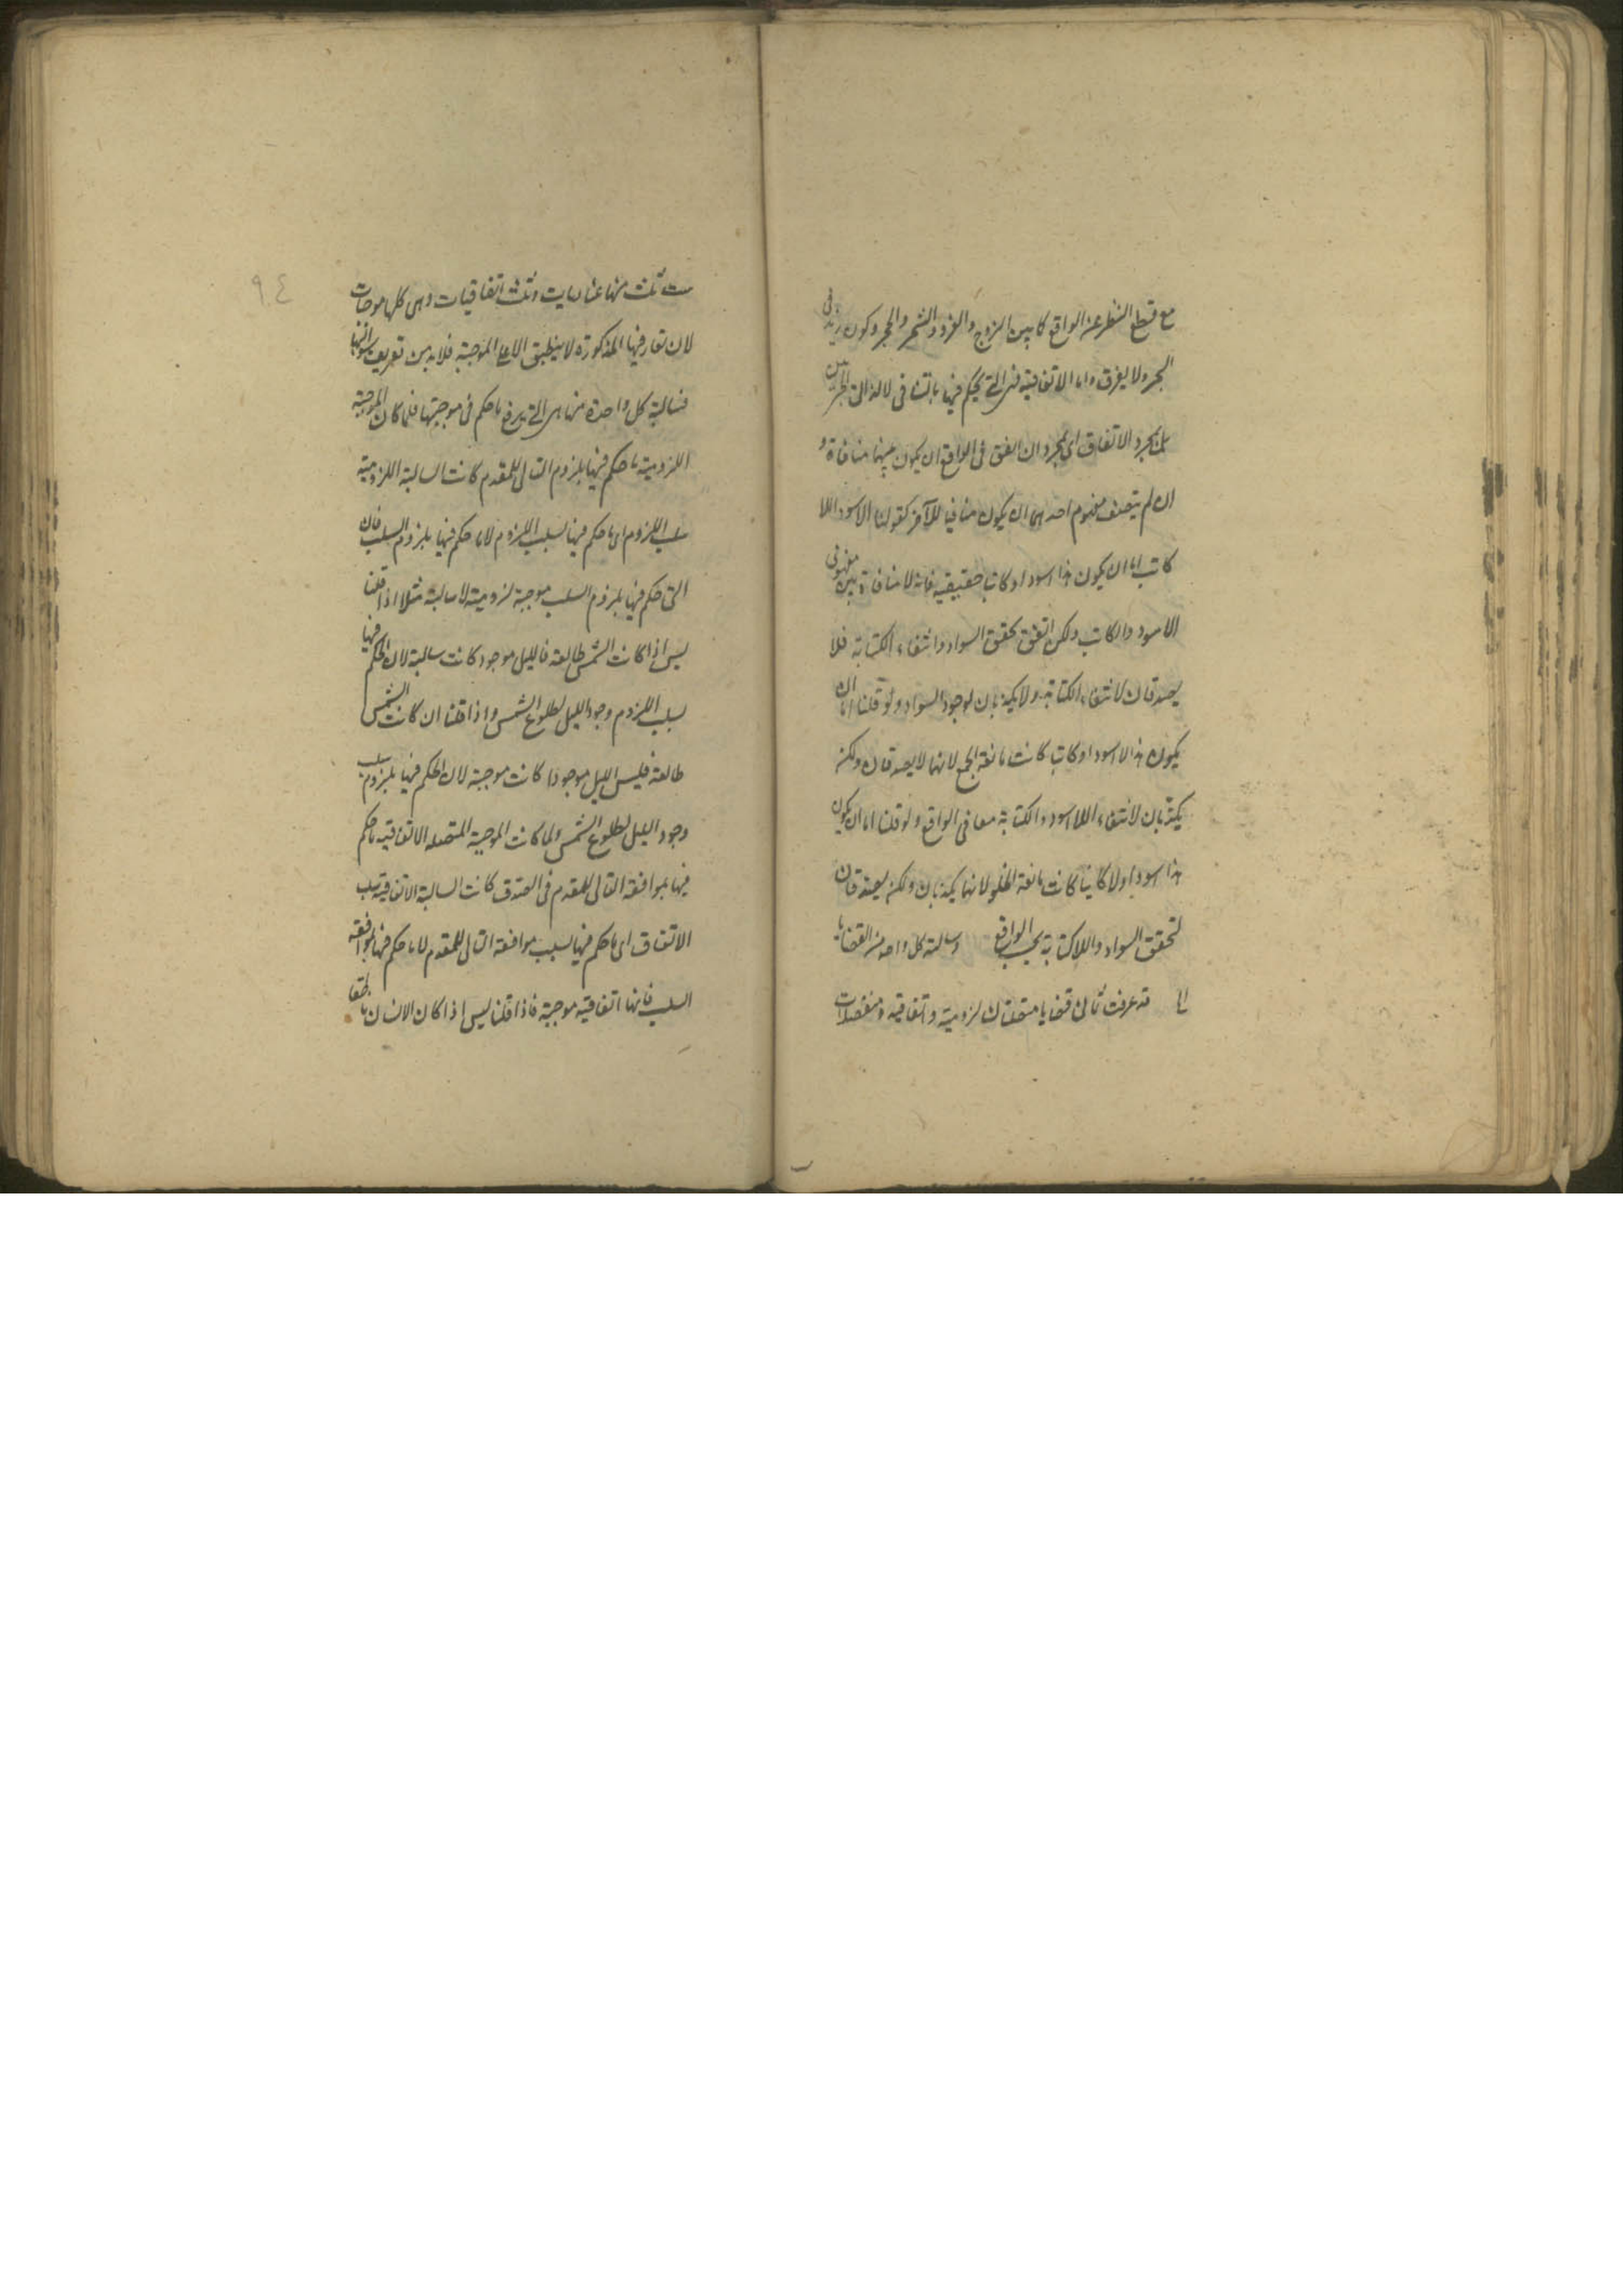 مع قطع النظر عن الواقع كما بين الزوج والفرد والشجر والحجر وكون زيد فى
البحر ولا يغرق واما الاتفاقية فهى التى يحكم فيها بالتنافى لا لذاتى الجزئين
بل بمجرد الاتفاق اى بمجرد ان اتفق فى الواقع ان يكون بينهما منافاة و
ان لم يقتض مفهوم احدهما ان يكون منافيا للآخر كقولنا للاسود اللا
كاتب اما ان يكون هذا اسود او كاتبا حقيقية فانه لا منافاة بين مفهومى
الاسود والكاتب ولكن اتفق تحقق السواد وانتفاء الكتابة فلا
يصدقان لانتفاء الكتابة ولا يكذبان لوجود السواد ولو قلنا اما ان
يكون هذا لا اسود او كاتبا كانت مانعة الجمع لانهما لا يصدقان ولكن
يكذبان لانتفاء اللا اسود والكتابة معا فى الواقع ولو قلنا اما ان يكون
هذا اسود او لا كاتبا كانت مانعة الخلو لانهما لا يكذبان ولكن يصدقان
لتحقق السواد واللاكتابة بحسب الواقع وسالبة كل واحدة من القضايا
الـ قد عرفت ثمانى قضايا متصلتان لزومية واتفاقية ومنفصلات
ست ثلث منها عناديات وثلث اتفاقيات وهى كلها موجبات
لان تعاريفها المذكورة لا ينطبق الا على الموجبة فلا بد من تعريف سوالبها
فسالبة كل واحدة منها هى التى يرفع ما حكم فى موجبتها فلما كان الموجبة
اللزومية ما حكم فيها بلزوم التالى للمقدم كانت السالبة اللزومية
سلب اللزوم اى ما حكم فيها بسلب اللزوم لا ما حكم فيها بلزوم السلب فان
التى حكم فيها بلزوم السلب موجبة لزومية لا سالبة مثلا اذا قلنا
ليس اذا كانت الشمس طالعة فالليل موجود كانت سالبة لان الحكم فيها
بسلب اللزوم وجود الليل لطلوع الشمس واذا قلنا ان كانت الشمس
طالعة فليس الليل موجودا كانت موجبة لان الحكم فيها بلزوم سلب
وجود الليل لطلوع الشمس ولما كانت الموجبة المتصله الاتفاقيه ما حكم
فيها بموافقة التالى للمقدم فى الصدق كانت السالبة الاتفاقية سلب
الاتفاق اى ما حكم فيها بسلب موافقة التالى للمقدم لا ما حكم فيها بموافقة
السلب فانها اتفاقية موجبة فاذا قلنا ليس اذا كان الانسان ناطقا
٩٤